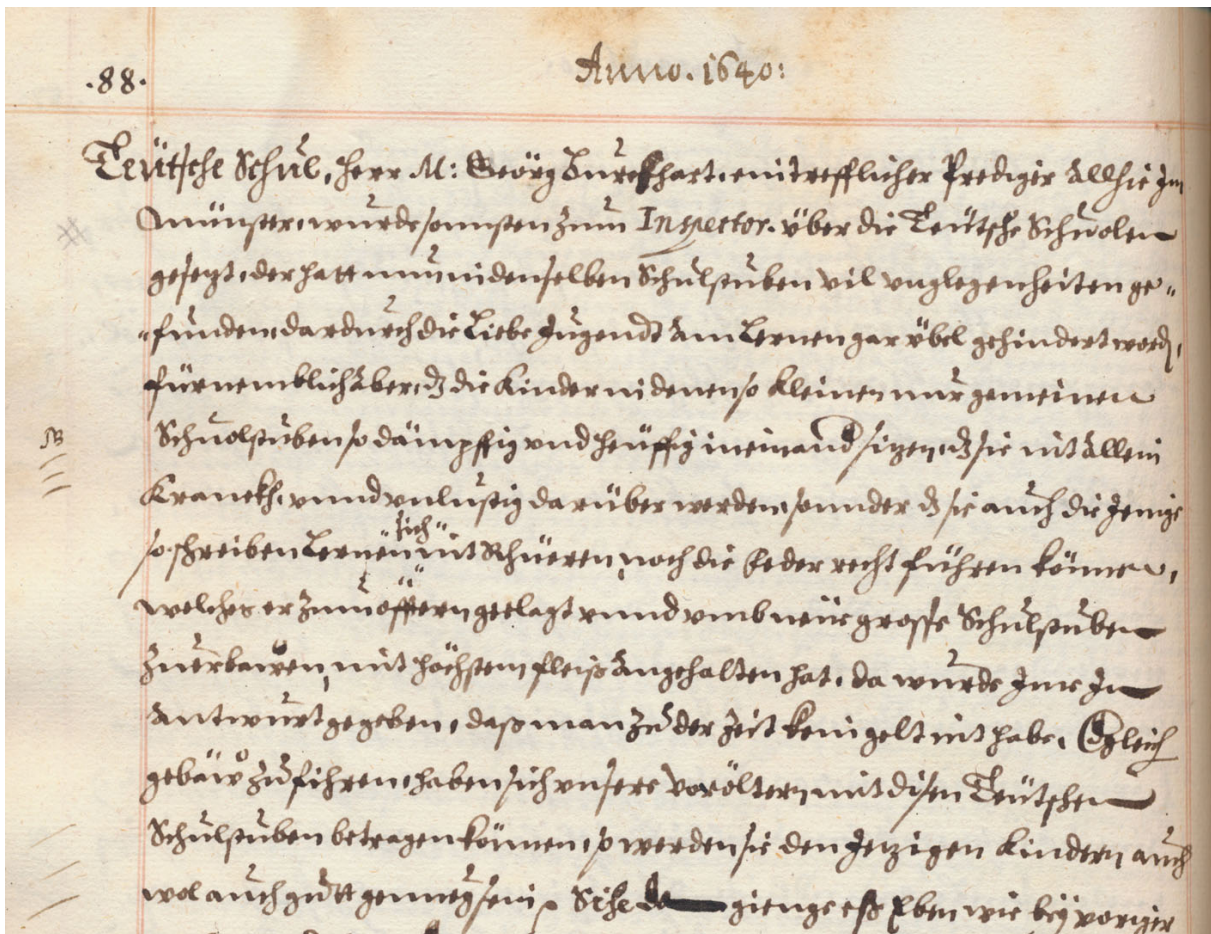 .88.
Anno. 1640:
Teütsche Schůl, Herr M: Geörg Burckhart, ein trefflicher Prediger allhie Jm
Münster, wurde sonnsten zum Inspector. über die Teütsche Schuolen
gesezt, der hatt nun in denselben Schůlstuben vil vnglegenheiten ge„
„funden, dardurch die Liebe Jugendt am Lernen gar übel gehindert word,
fürnemblich aber, dz die Kinder in denen so kleinen nur gemeinen
NB
Schuolstuben so dämpffig vnd heüffig in einand sizen, dz sie nit allein
Kranckh, vnnd vnlustig darüber werden, sonnder dz sie auch die Jenige
so schreiben Lernen sich nit Rhüeren, noch die Feder recht führen können,
welches er zum öfftern geclagt vnnd vmb neüe grosse Schůlstuben
zuerbawen, mit höchstem fleiß angehalten hat, da wurde Jme Jn
Antwurt gegeben, daß man zů der Zeit kein gelt nit habe,
gebäw zů führen, haben sich vnsere voröltern mit disen Teütschen
Schůlstuben betragen können, so werden sie den Jezigen Kindern auch
wol auch gůtt genueg sein gienge eß Eben wie beÿ voriger